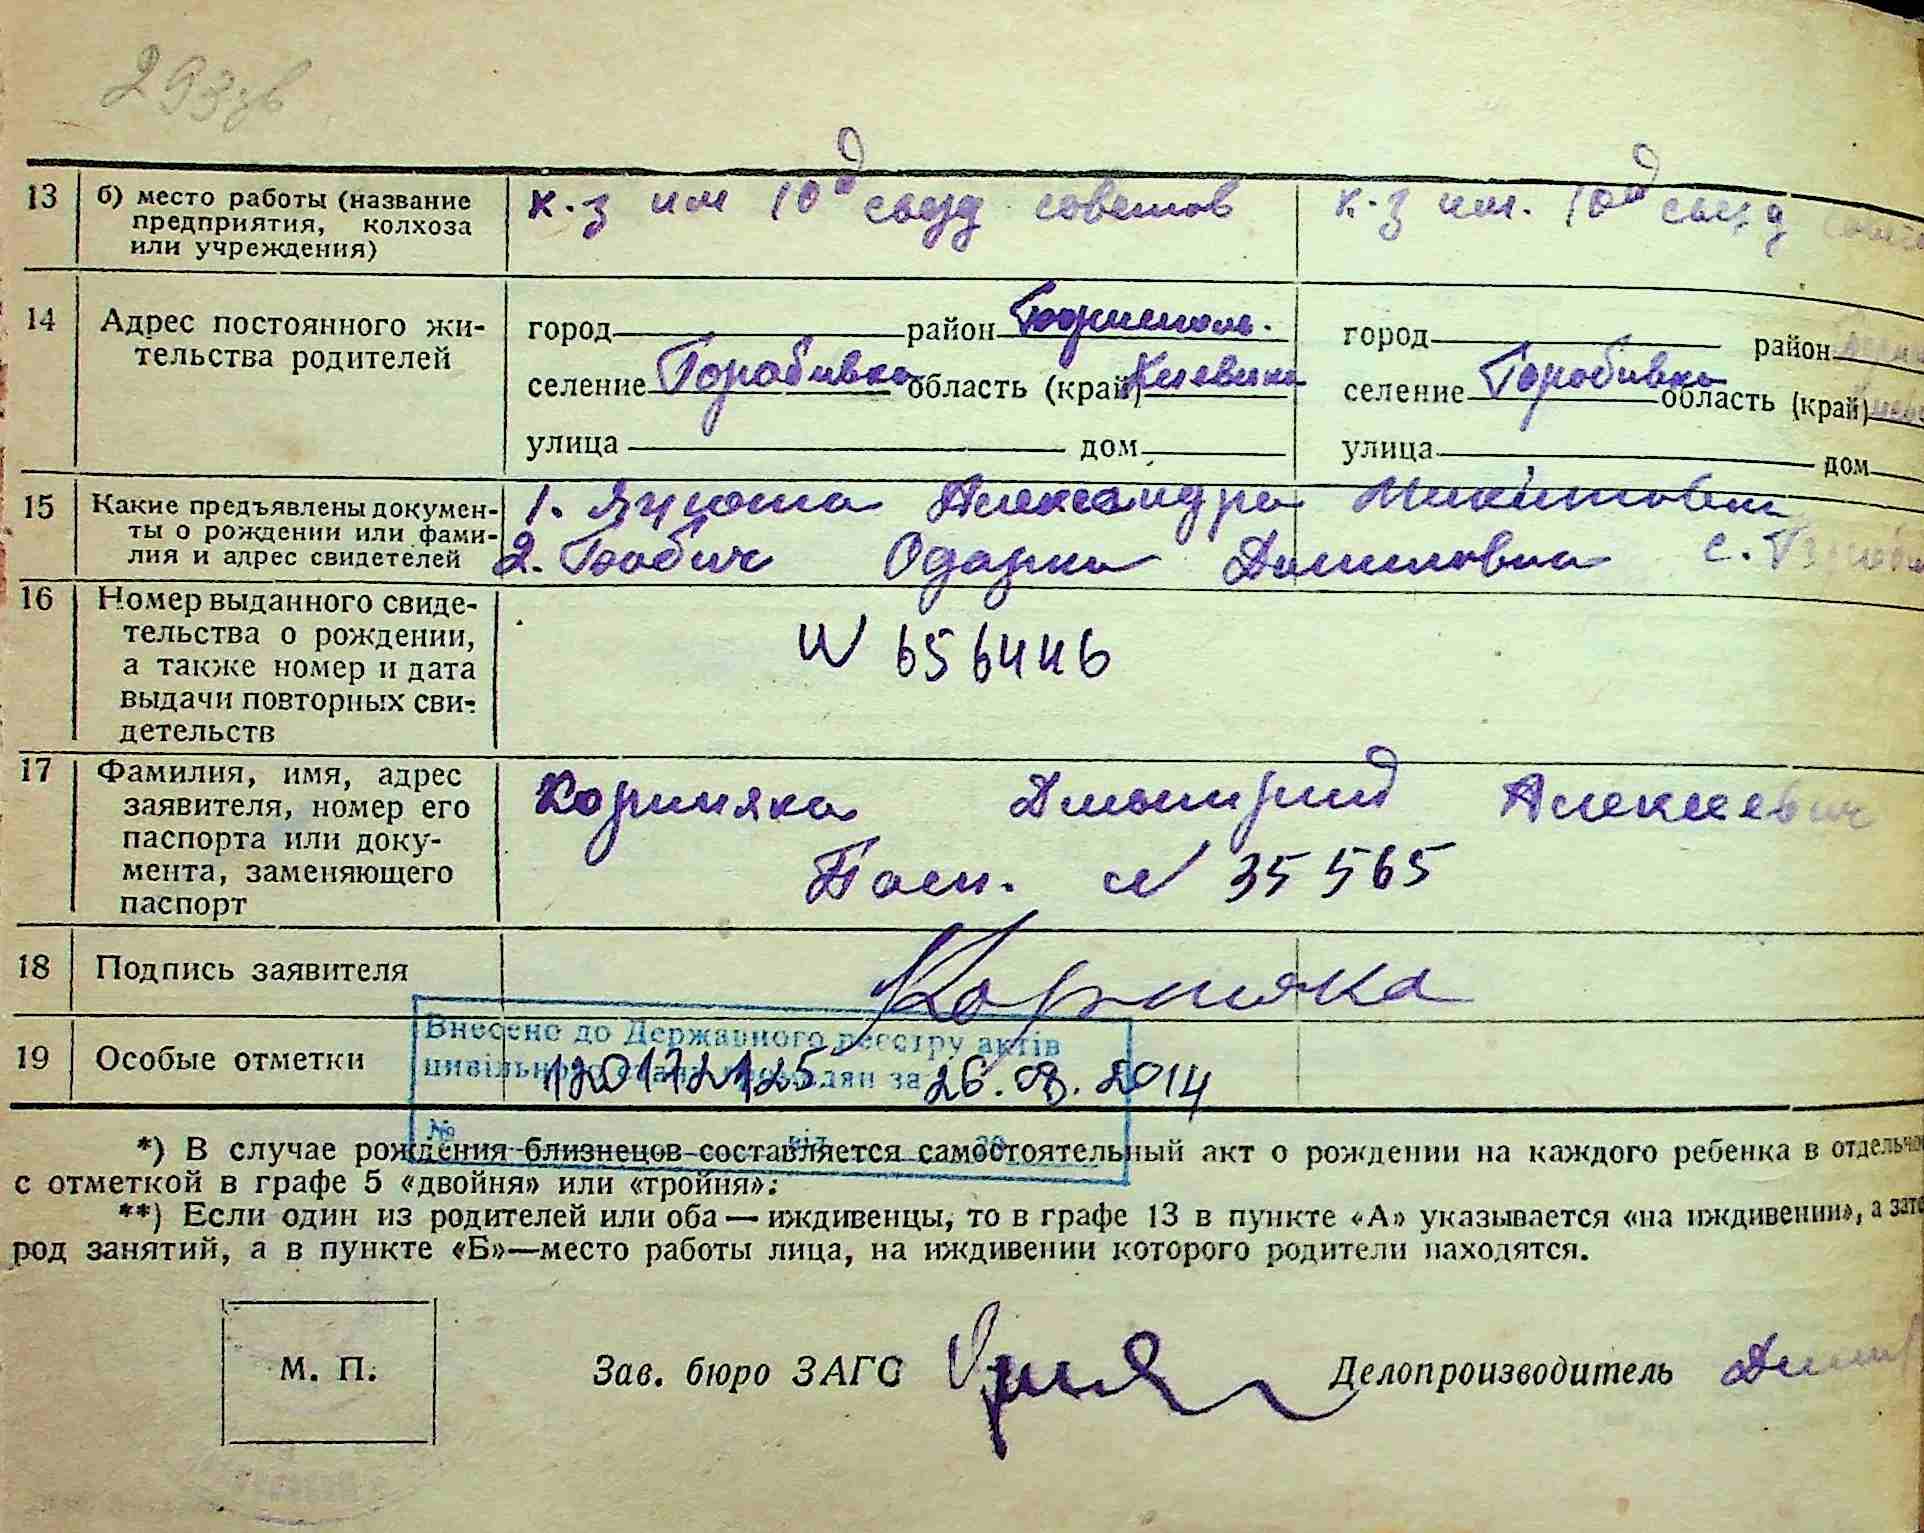 293зв
13 б) место работы (название предприятия, колхоза или учреждения) к-з им 10й съезд советов к-з им. 10й съезд
14 Адрес постоянного жи-
тельства родителей
город район Борисполь. город район
селение Горобивка область (край) Киевска селение Горобивка область (край)
улица дом улица дом
15 Какие предъявлены докумен-
ты о рождении или фами-
лия и адрес свидетелей
1. Яцюта Александра Микитовна
2. Бабич Одарка Даниловна с.
16 Номер выданного свиде-
тельства о рождении,
а также номер и дата
выдачи повторных сви-
детельств
N 656446
17 Фамилия, имя, адрес
заявителя, номер его
паспорта или доку-
мента, заменяющего
паспорт
Корнияка Дмытрий Алексеевич
Пасп. N 35565
18 Подпись заявителя Корнияка
19 Особые отметки
Внесено до Державного реєстру актів
цивільного стану громадян за
120172125 26.08.2014
№ від 20
*) В случае рождения близнецов составляется самостоятельный акт о рождении на каждого ребенка в
с отметкой в графе 5 «двойня» или «тройня»:
**) Если один из родителей или оба — иждивенцы, то в графе 13 в пункте «А» указывается «на иждивении», а
род занятий, а в пункте «Б»—место работы лица, на иждивении которого родители находятся.
М. П. Зав. бюро ЗАГС Делопроизводитель